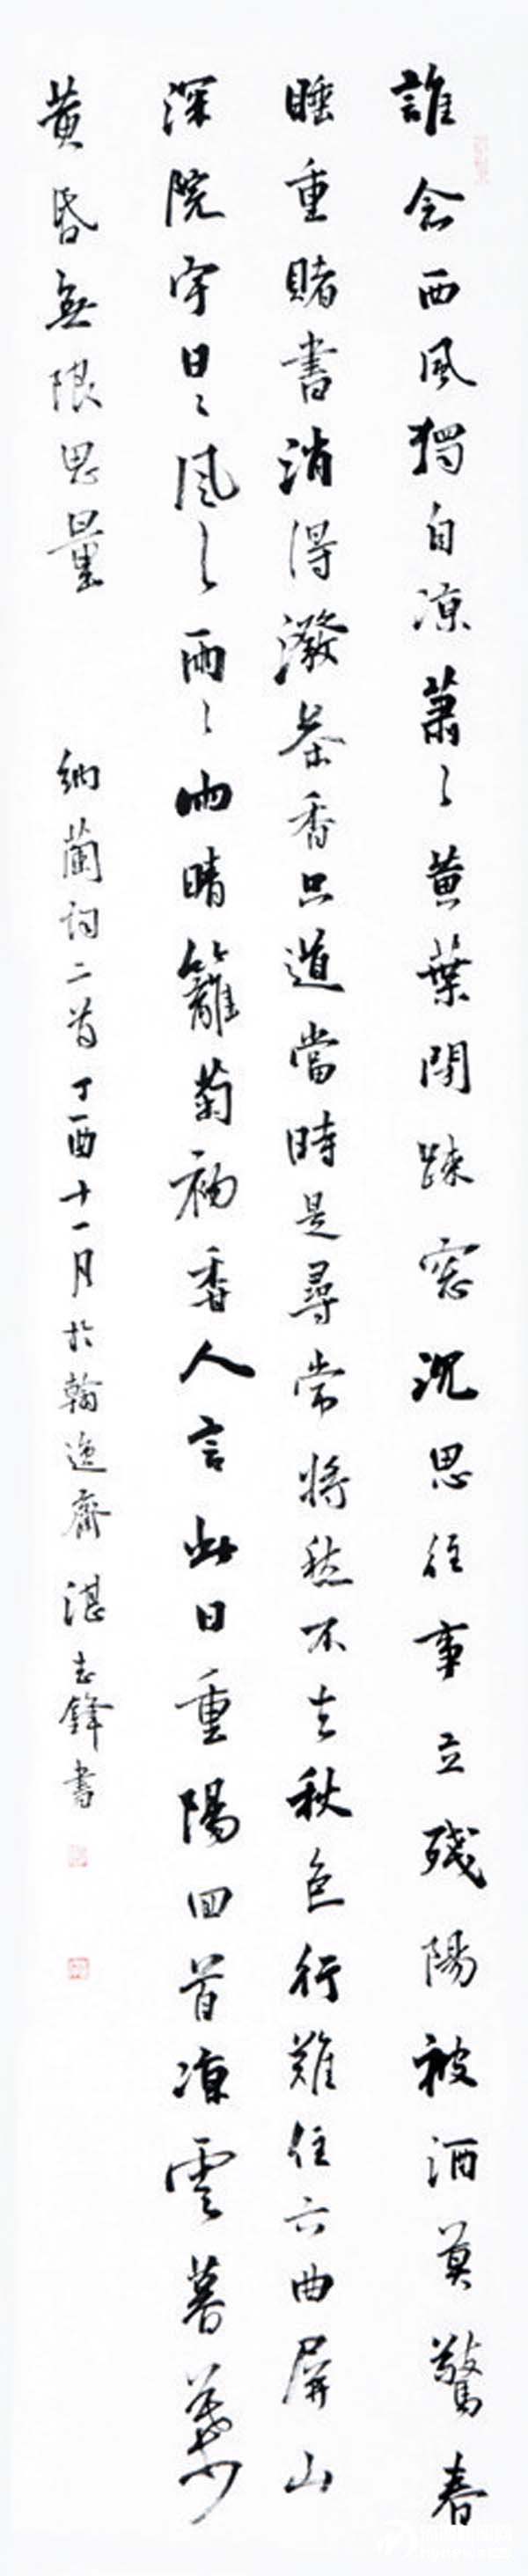 誰念西風獨自涼蕭々黃葉閉疎窓沉思往事立残陽被酒莫驚春
睡重賭書消得潑茶香只道當時是尋常将愁不去秋色行難住六曲屏山
深院宇日々風々雨々雨晴籬菊初香人言此日重陽回首涼雲暮葉
黃昏無限思量 納蘭詞二首丁酉十一月於翰逸齋湛志鋒書